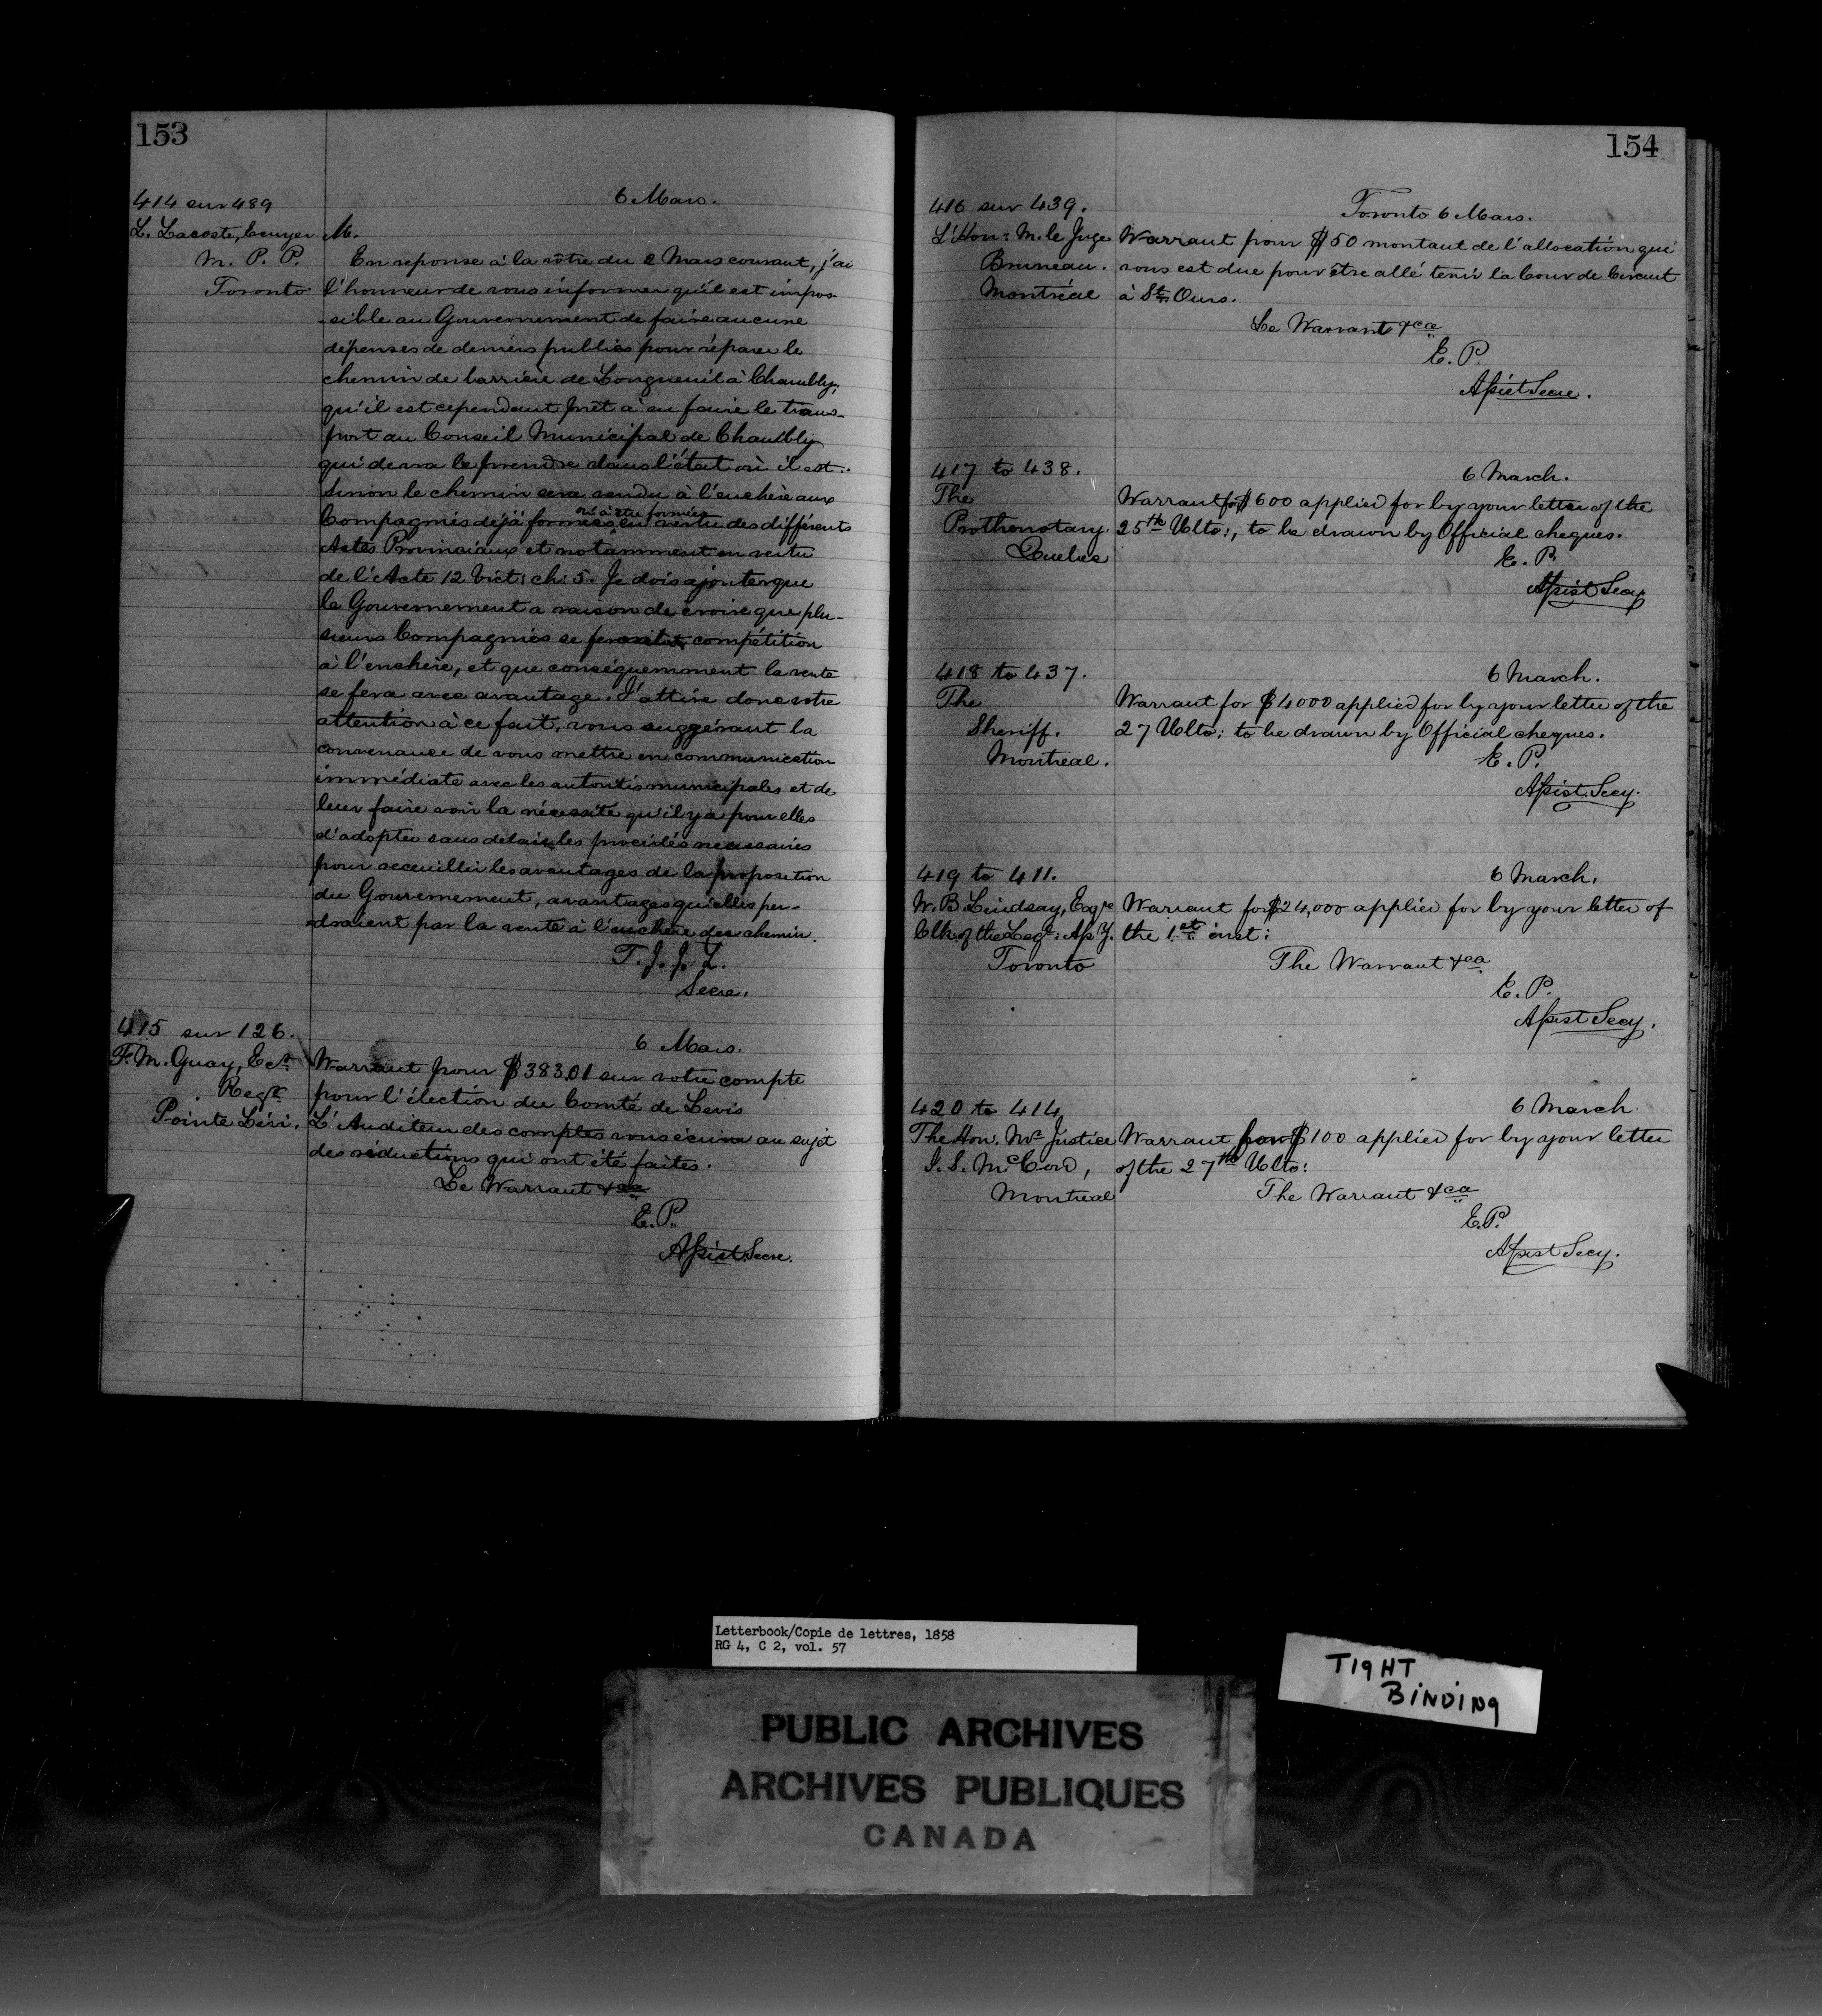 153
414 sur 489
6 Mars.
L. Lacoste, Ecuyer
M. P. P.
Toronto
M.
En reponse à la vôtre du 2 Mars courant, j'ai
l'honneur de vous informer qu'il est impos-
sible au Gouvernement de faire aucune
dépenses de deniers publics pour réparer le
chemin de barrière de Longueuil à Chambly,
qu'il est cependant prêt à en faire le trans-
port au Conseil Municipal de Chambly
qui devra le prendre dans l'état où il est.
Sinon le chemin sera vendu à l'enchère aux
Compagnies déjà formées ou à être formées en vertu des différents
Actes Provinciaux et notamment en vertu
de l'Acte 12 Vict: ch: 5. Je dois ajouter que
le Gouvernement a raison de croire que plu-
sieurs Compagnies se feront compétition
à l'enchère, et que conséquemment la vente
se fera avec avantage. J'attire donc votre
attention à ce fait, vous suggérant la
convenance de vous mettre en communication
immédiate avec les autorités municipales et de
leur faire voir la nécessité qu'il y a pour elles
d'adopter sans delai les procédés necessaires
pour receuillir les avantages de la proposition
du Gouvernement, avantages qu'elles per-
draient par la vente à l'enchère des chemin.
T. J. J. L.
Secre.
415 sur 126.
6 Mars.
F. M. Guay, Ecr.
Regr.
Pointe Lévi.
Warrant pour $383.01 sur votre compte
pour l'élection du Comté de Levis
L'Auditeur des comptes vous écrira au sujet
des réductions qui ont été faites.
Le Warrant &ca
E. P.
Assist. Secre.
154
416 sur 439.
Toronto 6 Mars.
L'Hon: M. le Juge
Bruneau.
Montréal
Warrant pour $50 montant de l'allocation qui
vous est due pour être allé tenir la Cour de Circuit
à St. Ours.
Le Warrant &ca
E. P.
Assist Secre.
417 to 438.
6 March.
The
Prothonotary
Quebec
Warrant for $600 applied for by your letter of the
25th Ulto:, to be drawn by Official cheques.
E. P.
Assist Secy
418 to 437.
6 March.
The
Sheriff.
Montreal.
Warrant for $4000 applied for by your letter of the
27 Ulto; to be drawn by Official cheques.
E. P.
Assist. Secy.
419 to 411.
6 March.
W. B. Lindsay, Esqre
Clk of the Legt: Asy.
Toronto
Warrant for $24,000 applied for by your letter of
the 1st inst:
The Warrant &ca
E. P.
Assist Secy.
420 to 414
6 March
The Hon. Mr Justice
J. S. McCord,
Montreal
Warrant for $100 applied for by your letter
of the 27th Ulto:
The Warrant &ca
E.P.
Assist Secy.
Letterbook/Copie de lettres, 1858
RG 4, C 2, vol. 57
TIGHT
BINDING
PUBLIC ARCHIVES
ARCHIVES PUBLIQUES
CANADA